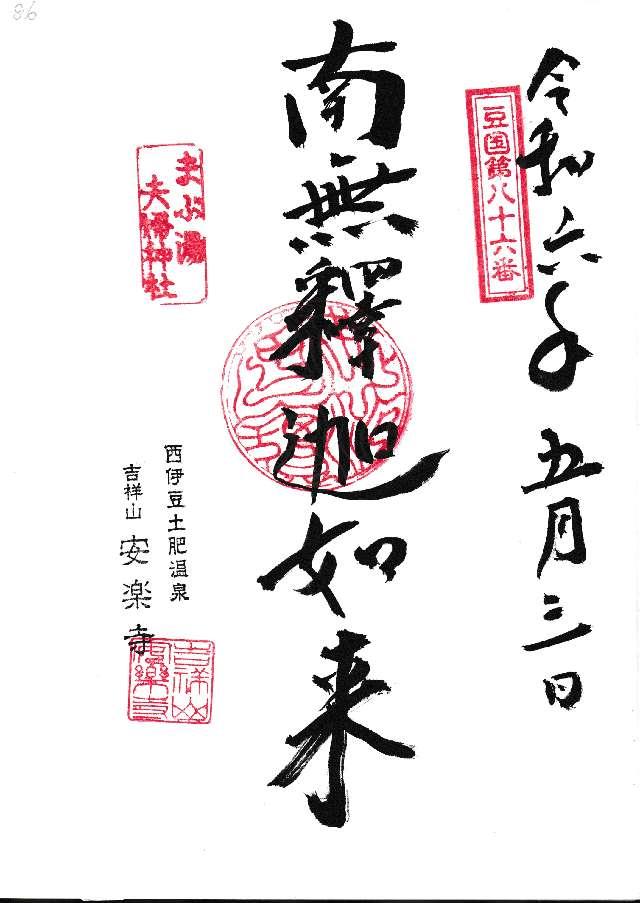 86
令和六年五月三日
豆国第八十六番
南無釋迦如来
まぶ湯
夫婦神社
西伊豆土肥温泉
吉祥山 安楽寺
吉祥山
安樂寺